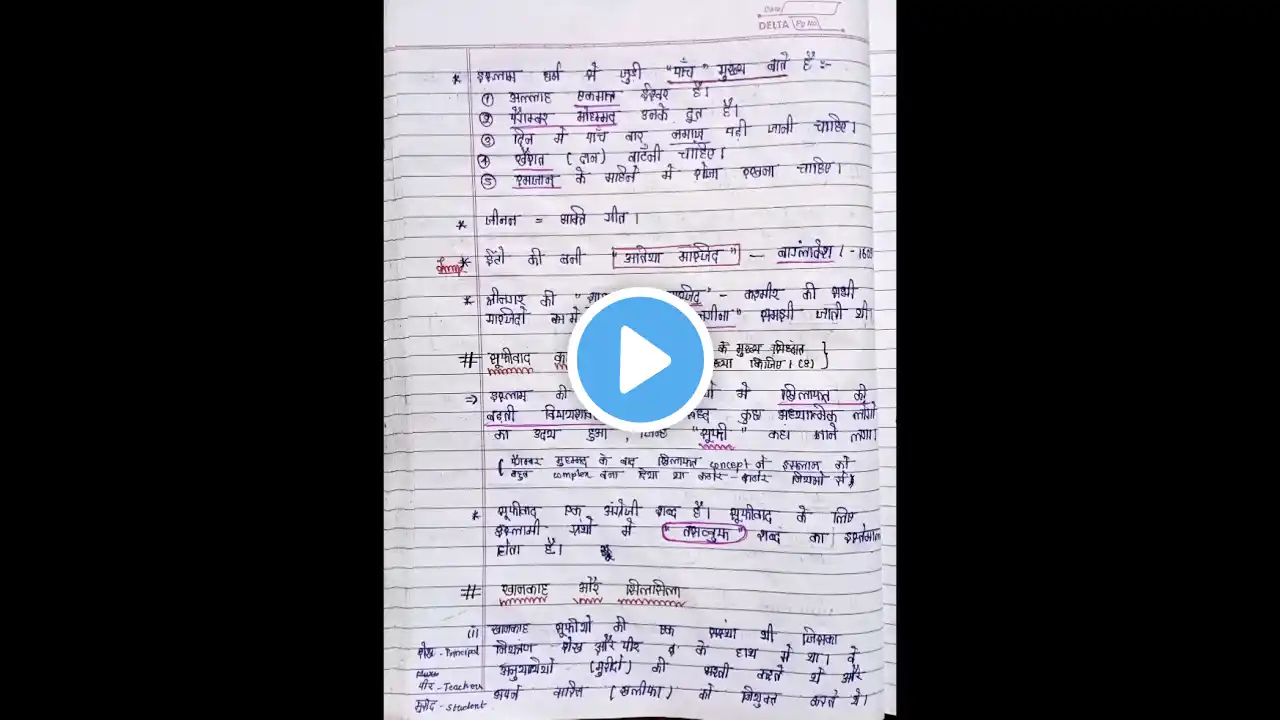 DATE
DELTA Pg No
* इस्लाम धर्म से जुडी "पाँच" मुख्य बाते है :-
① अल्लाह एकमात्र ईश्वर है।
② पैगम्बर मोहम्मद उनके दूत है।
③ दिन मे पाँच बार नमाज़ पढ़ी जानी चाहिए।
④ खैरात (दान) बाटँनी चाहिए।
⑤ रमाजान के माहिने मे रोजा रखना चाहिए।
* जीनन = भाक्ति गीत।
Imp * ईंटो की बनी "अतिया मास्जिद" — बाग्लांदेश। - 1609
* श्रीनगर की मास्जिद" - कश्मीर की सभी
मास्जिदो का मे नगीना" समझी जाती थी।
# सूफीवाद के मुख्य सिध्दांत
किजिए। (8)
⇒ इस्लाम की मे खिलाफत की
बढ़ती कुछ अध्यात्मिक लोगो
का उदय हुआ, जिन्हे "सूफी" कहा जाने लगा।
(पैगम्बर मुहम्मद के बाद खिलाफत concept ने इस्लाम को
बहुत complex बना दिया था कठोर - कठोर नियमो से)
* सूफीवाद एक अंग्रेजी शब्द है। सूफीवाद के लिए
इस्लामी ग्रंथो मे "तसव्वुफ" शब्द का इस्तेमाल
होता है।
# खानकाह और सिलसिला
(i) खानकाह सूफीयो की एक संस्था थी जिसका
शेख - Principal नियंत्रण शेख और पीर के हाथ मे था। वे
अनुयायियो (मुरीदो) की भरती करते थे और
पीर - Teacher
अपने वारिस (खलीफा) को नियुक्त करते थे।
मुरीद - Student